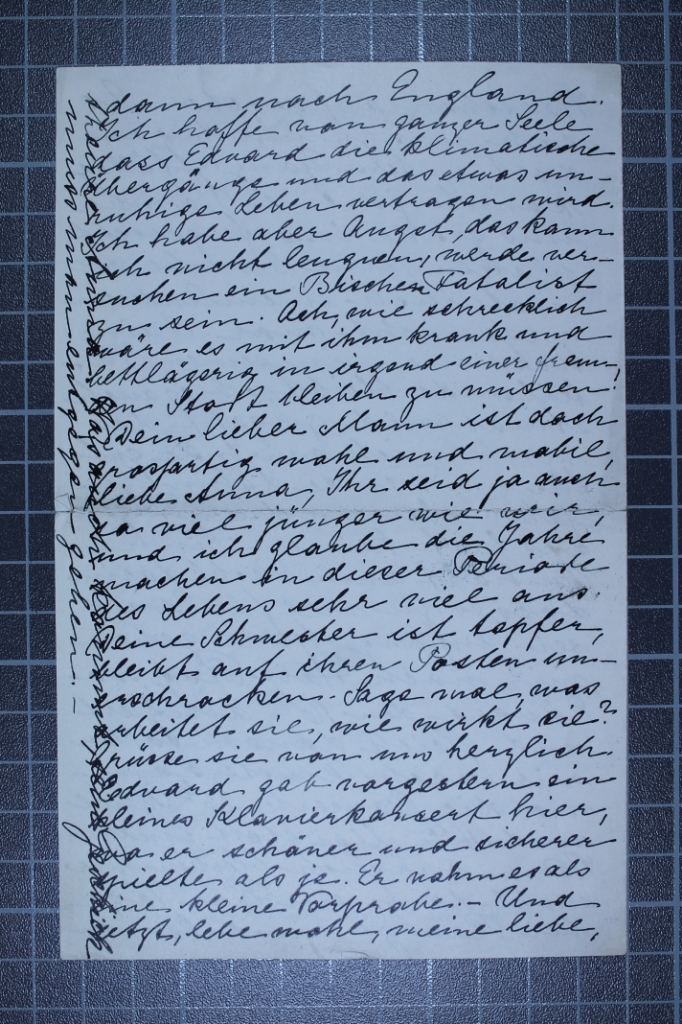 dann nach England.
Ich hoffe von ganzer Seele
dass Edvard die klimatische
Übergänge und das etwas un-
ruhige Leben vertragen wird.
Ich habe aber Angst, das kann
ich nicht leugnen, werde ver-
suchen ein Bischen Fatalist
zu sein. Ach, wie schrecklich
wäre es mit ihm krank und
bettlägerig in irgend einer frem-
den Stadt bleiben zu müssen!
Dein lieber Mann ist doch
grossartig wohl und mobil,
liebe Anna, Ihr seid ja auch
so viel jünger wie wir,
und ich glaube die Jahre
machen in dieser Periode
des Lebens sehr viel aus.
Deine Schwester ist tapfer,
bleibt auf ihren Posten un-
erschrocken. Sage mal, was
arbeitet sie, wie wirkt sie?
Grüsse sie von uns herzlich.
Edvard gab vorgestern ein
kleines Klavierkonzert hier,
wo er schöner und sicherer
spielte als je. Er nahm es als
eine kleine Vorprobe. – Und
jetzt, lebe wohl, meine liebe,
muss man entgegen gehen. –